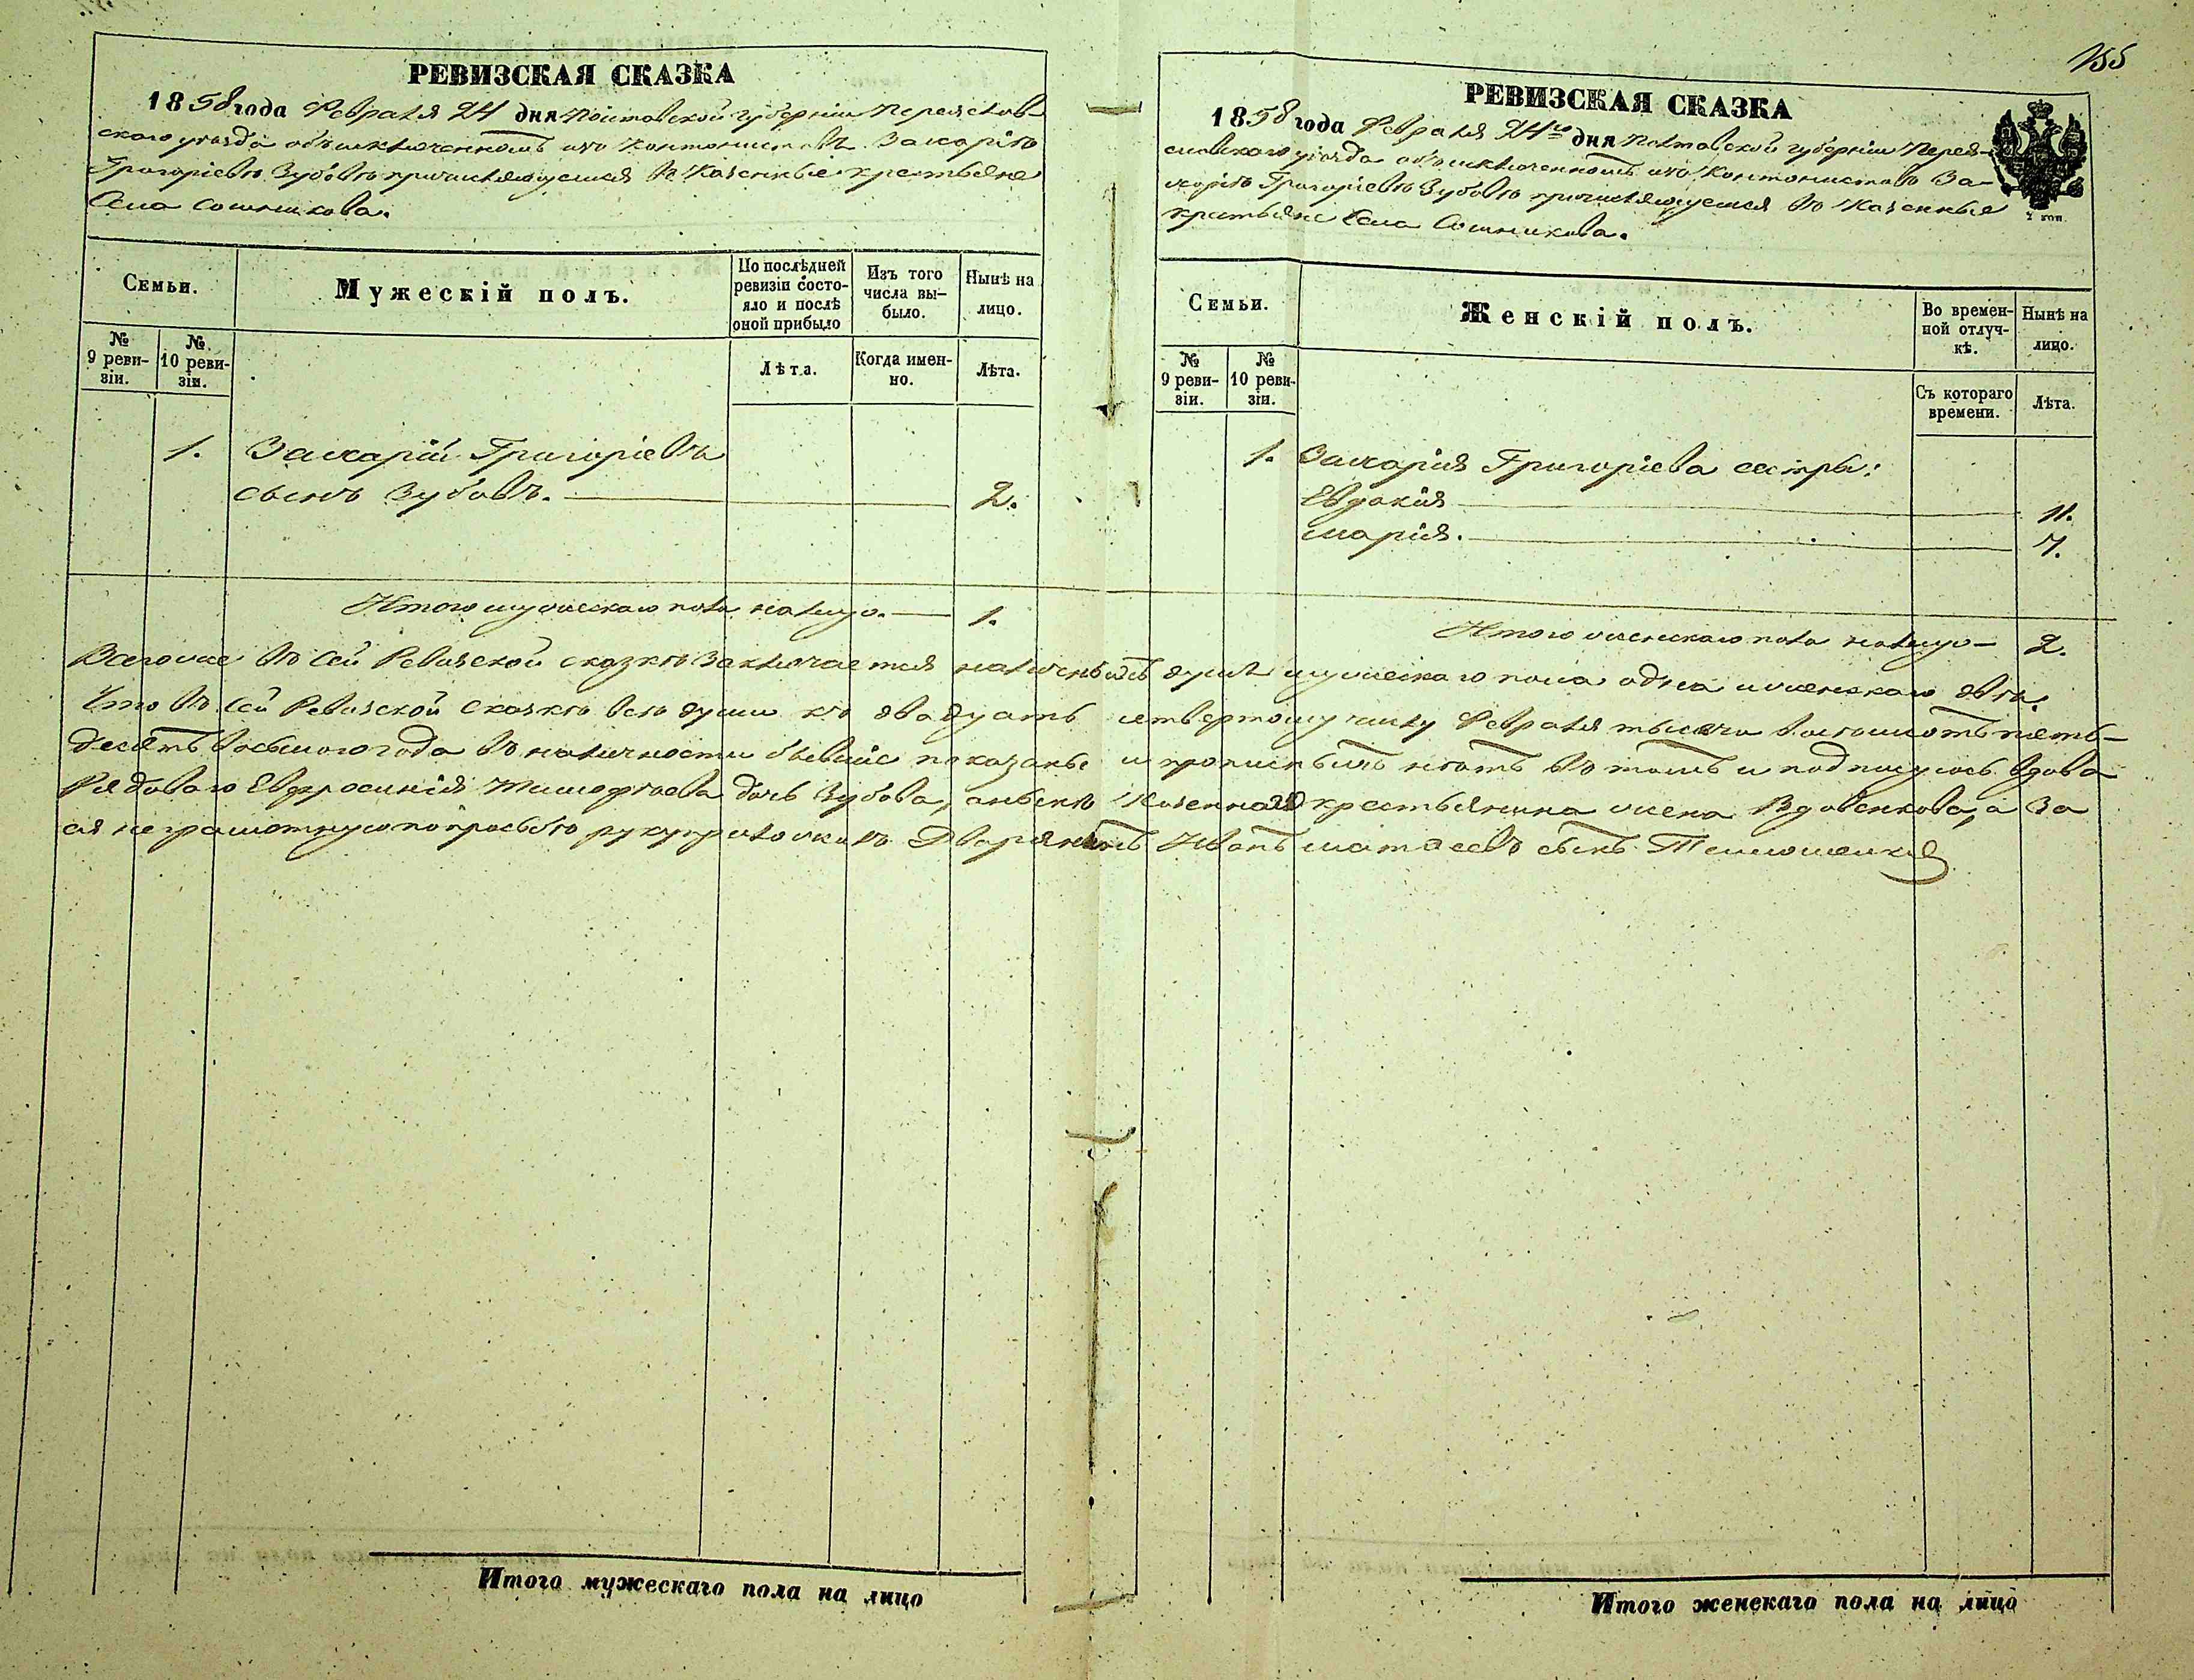 155
РЕВИЗСКАЯ СКАЗКА
1858 года Февраля 24 дня Полтавской губерніи Переяслав-
скаго уезда объ исключенномъ изъ Кантонистовъ Захаріѣ
Григоріевѣ Зубовѣ причисляющемся въ Казенные крестьяне
Села Сошникова.
Семьи.
Мужескій полъ.
По послѣдней ревизіи состо-
яло и послѣ
оной прибыло
Изъ того
числа вы-
было.
Нынѣ на
лицо.
№
9 реви-
зіи.
№
10 реви-
зіи.
Лѣта.
Когда имен-
но.
Лѣта.
1. Захарій Григоріевъ
сынъ Зубовъ. 2.
Итого мужескаго пола налицо. 1.
РЕВИЗСКАЯ СКАЗКА
1858 года Февраля 24го дня Полтавской губерніи Перея-
славскаго уезда объ исключенномъ изъ Кантонистовъ За-
харіѣ Григоріевѣ Зубовѣ причисляющемся въ Казенные
крестьяне Села Сошникова.
Семьи.
Женскій полъ.
Во времен-
ной отлуч-
кѣ.
Нынѣ на
лицо.
№
9 реви-
зіи.
№
10 реви-
зіи.
Съ котораго
времени.
Лѣта.
1. Захарія Григоріева сестры:
Евдокия 11.
Марія. 7.
Итого женскаго пола налицо 2.
Всего же въ сей Ревизской сказкѣ заключается наличныхъ душъ мужескаго пола одна и женскаго двѣ.
Что въ сей Ревизской Сказкѣ всѣ души къ двадцать четвертому числу Февраля тысяча восемьсотъ пять-
десятъ восьмого года въ наличности бывшіе показаны и прописныхъ нѣтъ въ томъ и подписуюсь вдова
Рядоваго Евфросинія Тимофѣева дочь Зубова, а нынѣ Казеннаго крестьянина жена Вдовенкова, а за
ея неграмотную по просьбѣ рукуприложилъ Дворянинъ Иванъ Матвеевъ сынъ Тимошенко
Итого мужескаго пола на лицо
Итого женскаго пола на лицо